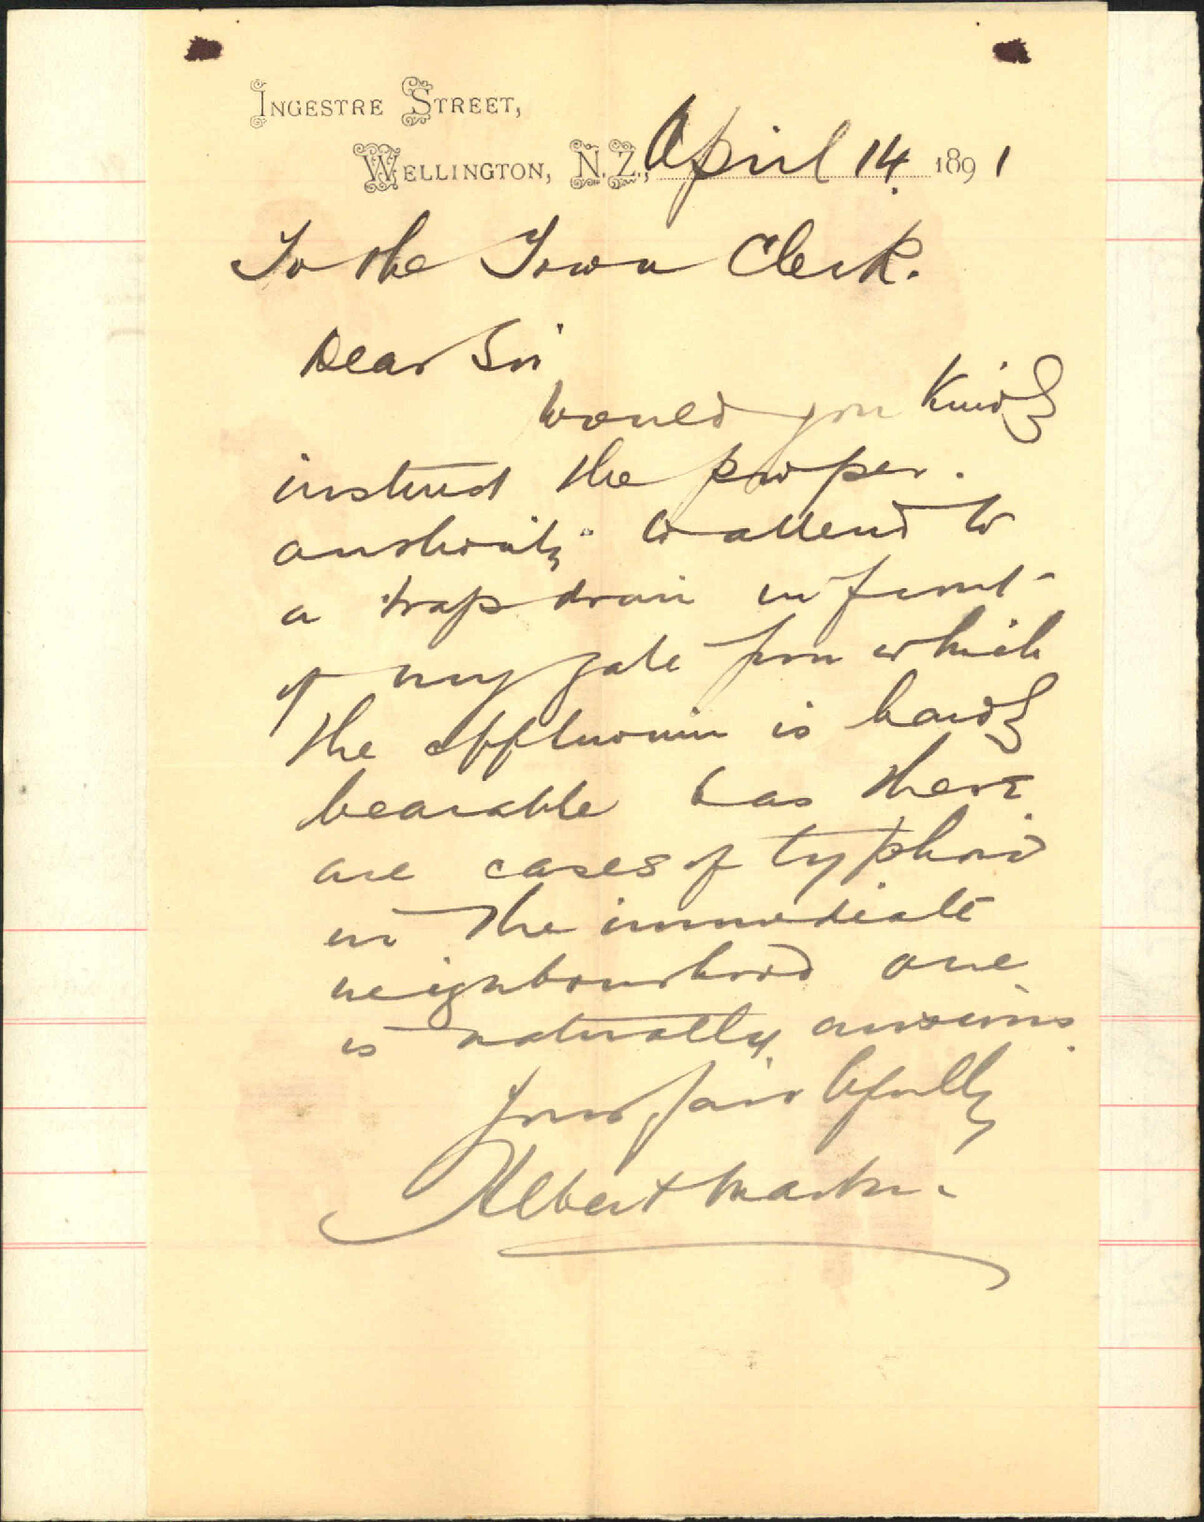 INGESTRE STREET,
WELLINGTON, N.Z., April 14. 1891
To the Town Clerk.
Dear Sir
Would you Kindly
instruct the proper.
authority to attend to
a trap drain in front
of my gate from which
the effluvium is hardly
bearable & as there
are cases of typhoid
in the immediate
neighbourhood one
is naturally anxious.
Yours faithfully
Albert Martin.